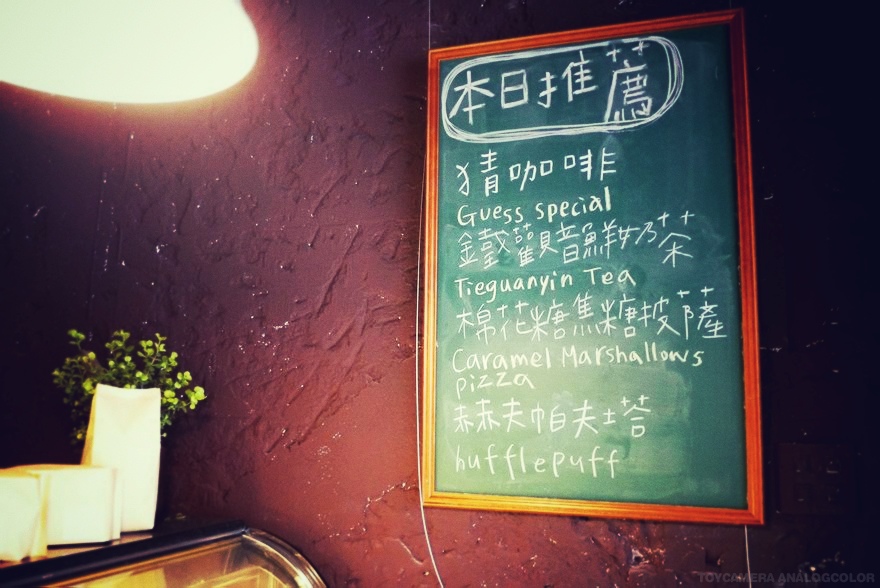 本日推薦
猜咖啡
Guess special
鐵觀音鮮奶茶
Tieguanyin Tea
棉花糖焦糖披薩
Caramel Marshallows
pizza
赫夫帕夫塔
hufflepuff
TOYCAMERA ANALOGCOLOR